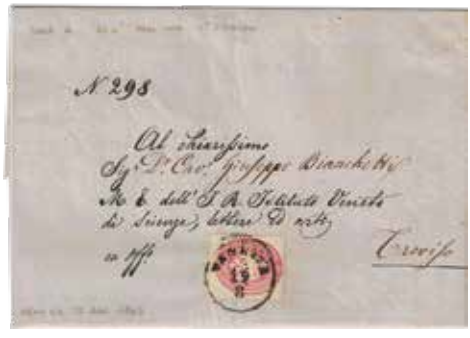 N. 298
Al chiarissimo
Sig.r Dr. Cav.r Giuseppe Bianchetti
M. E. dell' I. R. Istituto Veneto
di Scienze, lettere ed arti
Treviso
VENEZIA